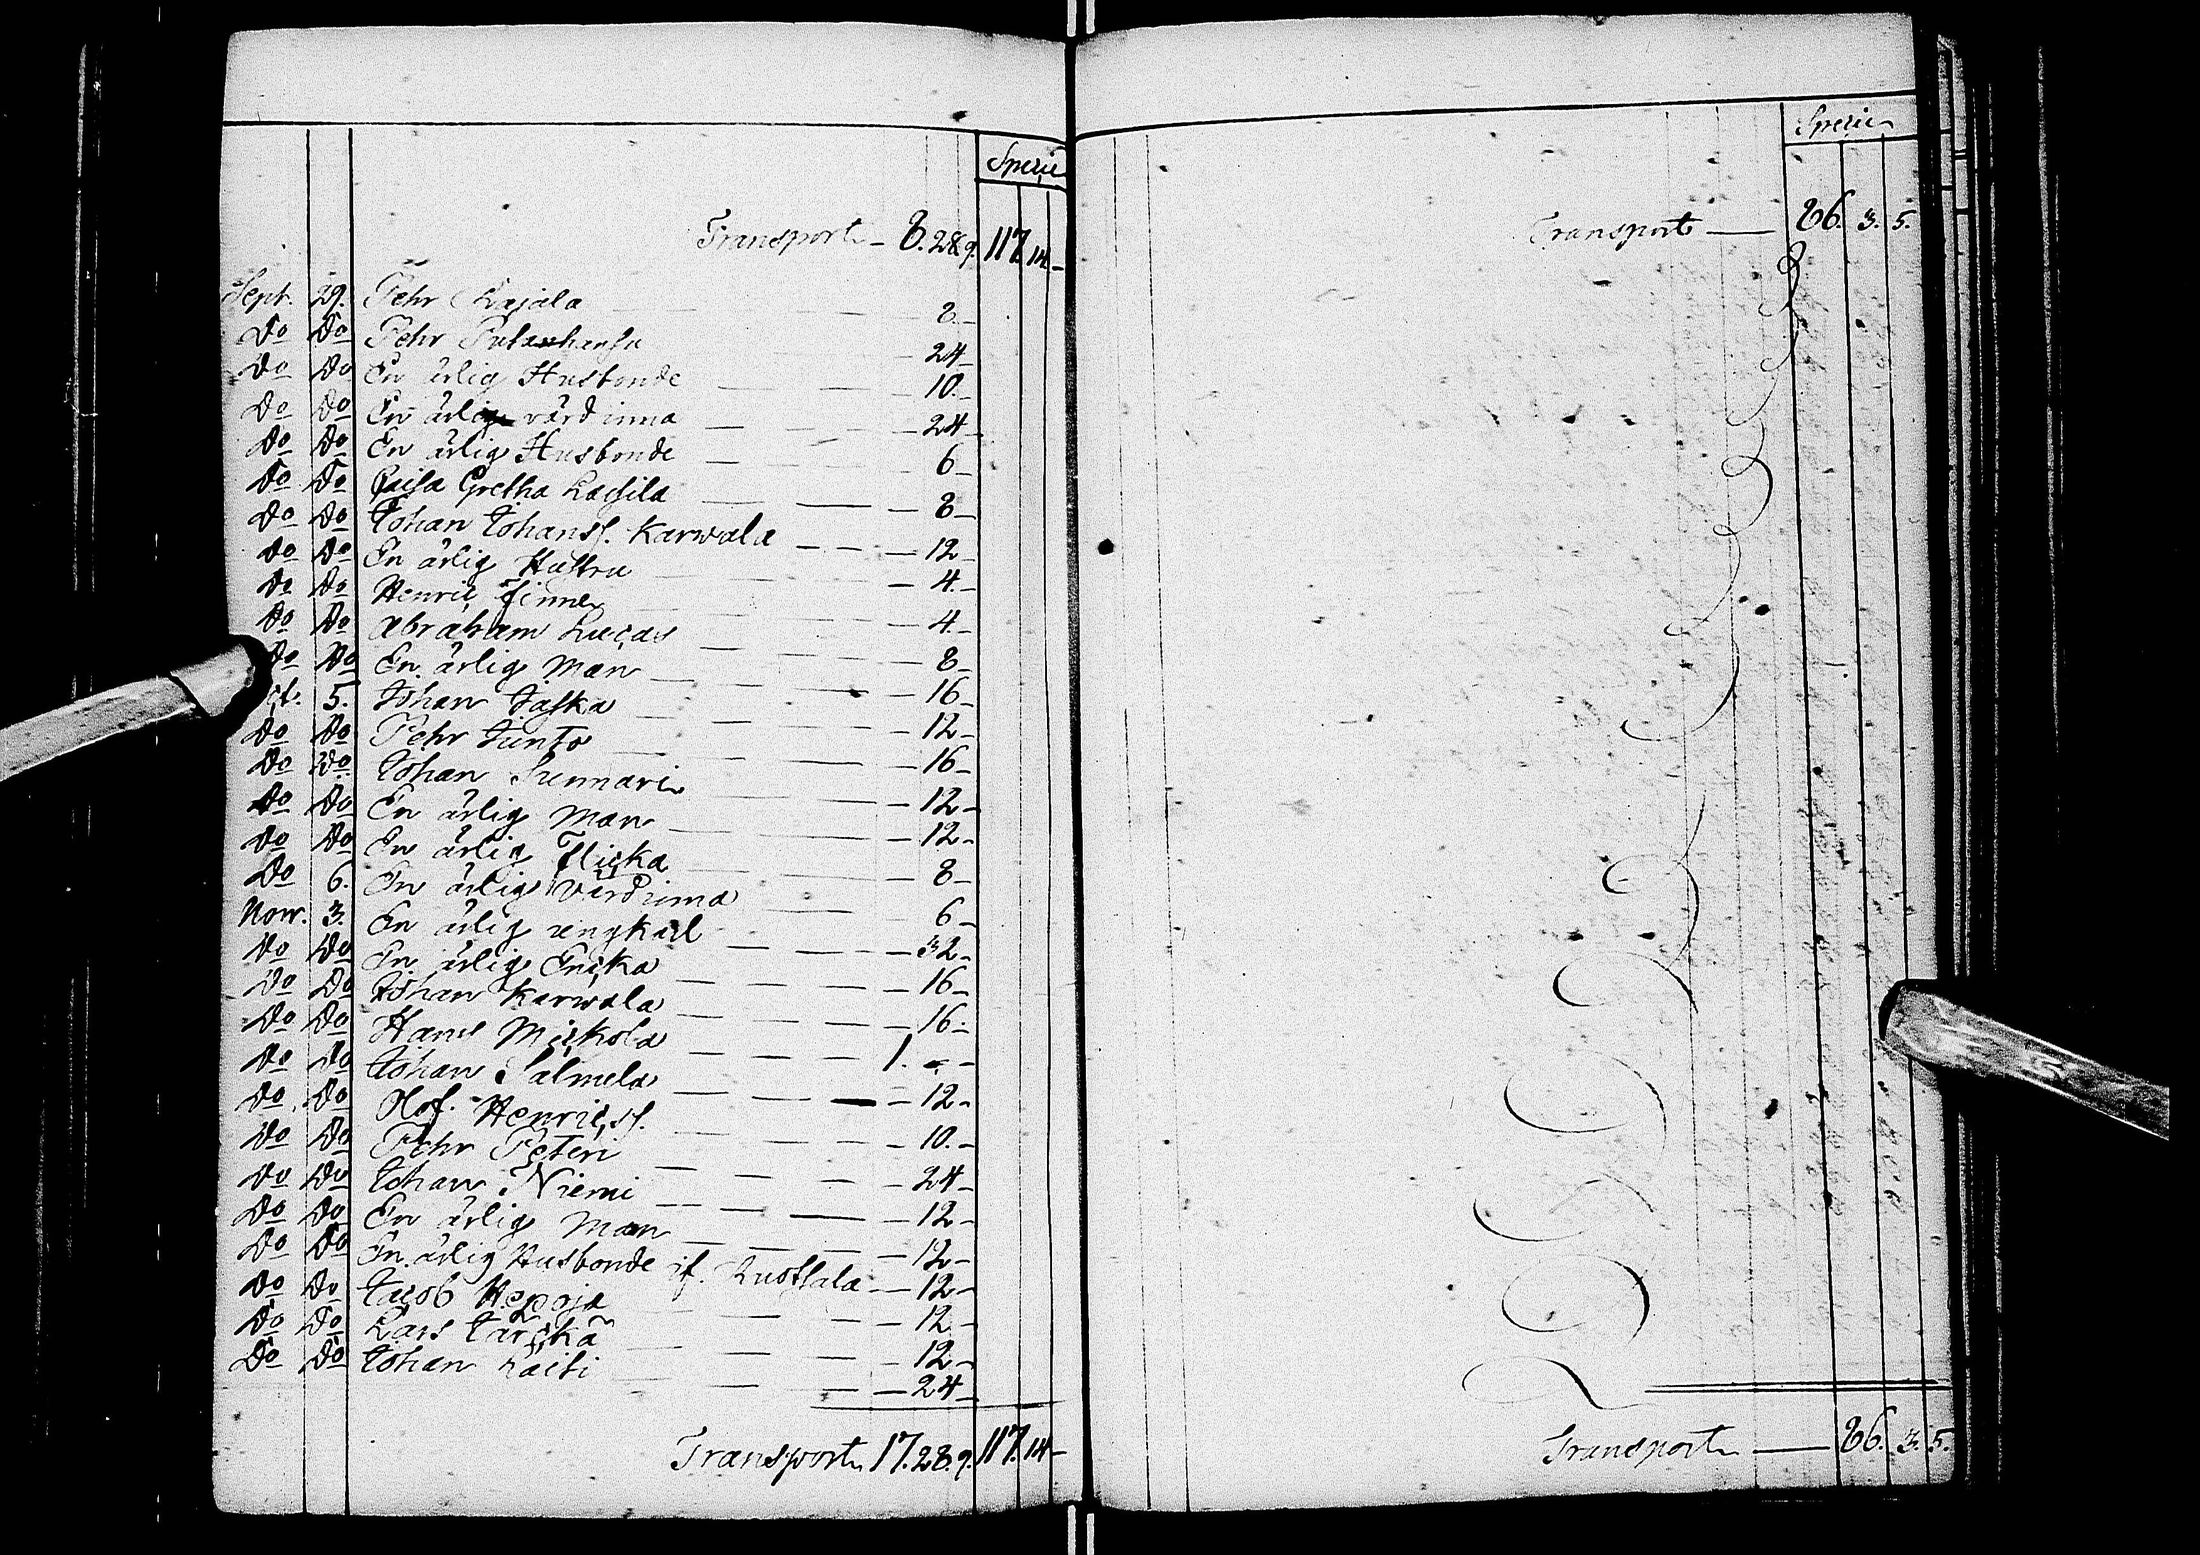 Specie
Transport 8. 28. 9. 117. 14 -
Sept. 29. Pehr Lajala 8 -
Do Do Pehr 24 -
Do Do En ärlig Husbonde 10 -
Do Do En ärlig värdinna 24 -
Do Do En ärlig Husbonde 6 -
Do Do Caisa Gretha Lassila 8 -
Do Do Johan Johanss. Karwala 12 -
Do Do En ärlig Hustru 4 -
Do Do Henric Finne 4 -
Do Do Abraham Lucas 8 -
Do Do En ärlig Man 16 -
5. Johan Jaska 12 -
Do Do Pehr Junto 16 -
Do Do Johan Sunnari 12 -
Do Do En ärlig Man 12 -
Do Do En ärlig Flicka 8 -
Do 6. En ärlig värdinna 6 -
Now. 3. En ärlig ungkarl 32 -
Do Do En ärlig Encka 16 -
Do Do Johan Karwala 16 -
Do Do Hans Mickola 1. - -
Do Do Johan Salmela 12 -
Do Do Olof Henricss. 10 -
Do Do Pehr Peteri 24 -
Do Do Johan Niemi 12 -
Do Do En ärlig Man 12 -
Do Do En ärlig Husbonde if. 12 -
Do Do Jacob Hepoja 12 -
Do Do Lars Jarckä 12 -
Do Do Johan Laiti 24 -
Transport 17. 28. 9. 117. 14 -
Specie
Transport 86. 3. 5.
Transport 86. 3. 5.